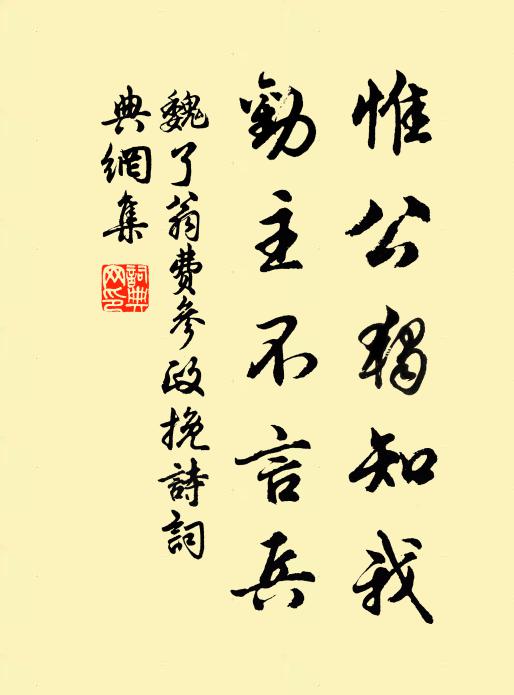 惟公独知我
勸主不言兵
魏了翁費參政挽詩詞
典網集
詞典
网印